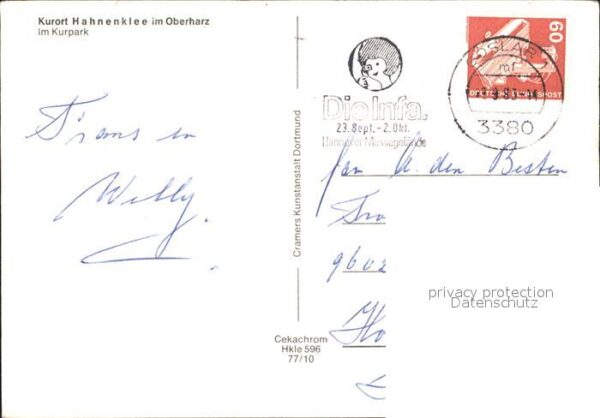 Kurort Hahnenklee im Oberharz
Im Kurpark
Willy.
Cramers Kunstanstalt Dortmund
Cekachrom
Hkle 596
77/10
Die Infa.
23. Sept. - 2. Okt.
Hannover Messegelände
GOSLAR 1
mf
3380
60
DEUTSCHE BUNDESPOST
den Besten
9602
privacy protection
Datenschutz